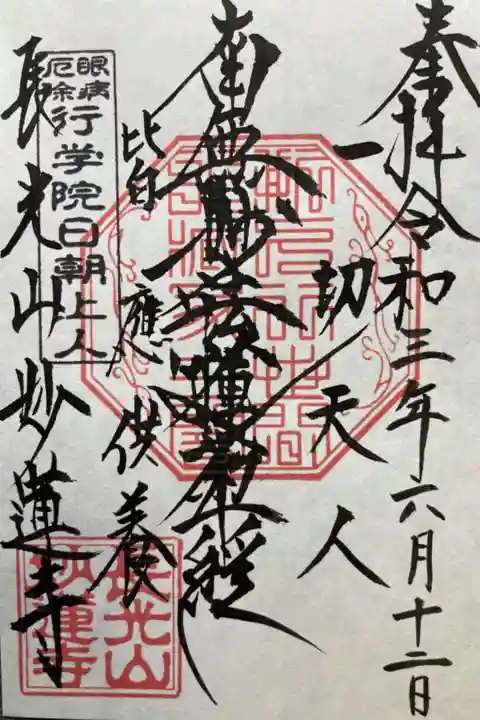 奉拝 令和三年六月十二日
一切天人
南無妙法蓮華経
皆應供養
長光山妙蓮寺
眼病
厄除
行学院日朝上人
長光山
妙蓮寺